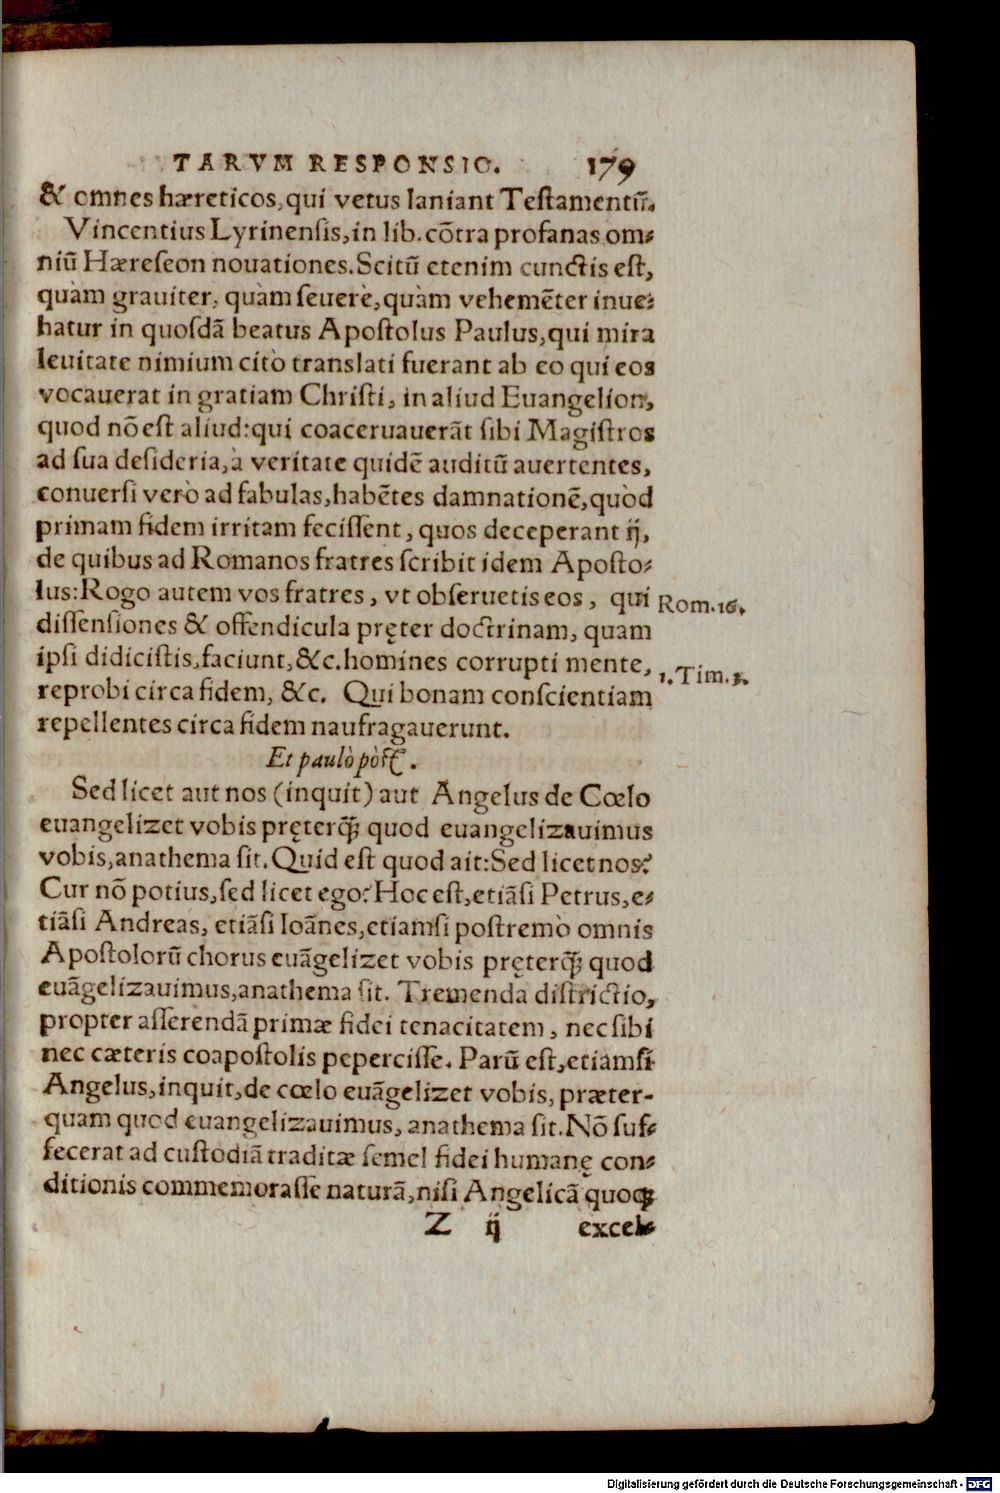 TARVM RESPONSIO. 179
& omnes hæreticos, qui vetus laniant Teſtamentũ.
Vincentius Lyrinenſis, in lib. cõtra profanas om-
niũ Hæreſeon nouationes. Scitũ etenim cunctis eſt,
quàm grauiter, quàm ſeuerè, quàm vehemẽter inue-
hatur in quoſdã beatus Apoſtolus Paulus, qui mira
leuitate nimium citò translati fuerant ab eo qui eos
vocauerat in gratiam Chriſti, in aliud Euangelion,
quod nõ eſt aliud: qui coaceruauerãt ſibi Magiſtros
ad ſua deſideria, à veritate quidẽ auditũ auertentes,
conuerſi verò ad fabulas, habẽtes damnationẽ, quòd
primam fidem irritam feciſſent, quos deceperant ij,
de quibus ad Romanos fratres ſcribit idem Apoſto-
lus: Rogo autem vos fratres, vt obſeruetis eos, qui
Rom. 16.
diſſenſiones & offendicula pręter doctrinam, quam
ipſi didiciſtis, faciunt, &c. homines corrupti mente,
1. Tim. 3.
reprobi circa fidem, &c. Qui bonam conſcientiam
repellentes circa fidem naufragauerunt.
Et paulò pòſt.
Sed licet aut nos (inquit) aut Angelus de Cœlo
euangelizet vobis pręterq̃; quod euangelizauimus
vobis, anathema ſit. Quid eſt quod ait: Sed licet nos?
Cur nõ potius, ſed licet ego? Hoc eſt, etiãſi Petrus, e-
tiãſi Andreas, etiãſi Ioãnes, etiamſi poſtremò omnis
Apoſtolorũ chorus euãgelizet vobis pręterq̃; quod
euãgelizauimus, anathema ſit. Tremenda diſtrictio,
propter aſſerendã primæ fidei tenacitatem, nec ſibi
nec cæteris coapoſtolis peperciſſe. Parũ eſt, etiamſi
Angelus, inquit, de cœlo euãgelizet vobis, præter-
quam quod euangelizauimus, anathema ſit. Nõ ſuf-
fecerat ad cuſtodiã traditæ ſemel fidei humanę con-
ditionis commemoraſſe naturã, niſi Angelicã quoq;
Z ij excel-
Digitalisierung gefördert durch die Deutsche Forschungsgemeinschaft - DFG